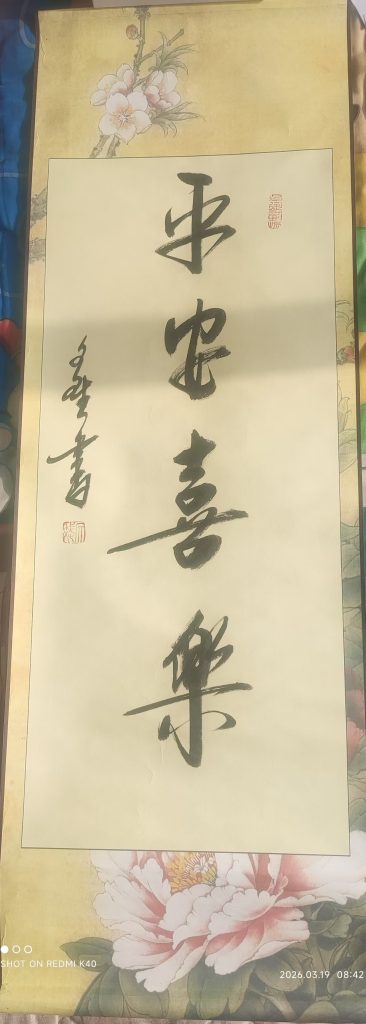 平安喜樂
書
SHOT ON REDMI K40
2026.03.19 08:42